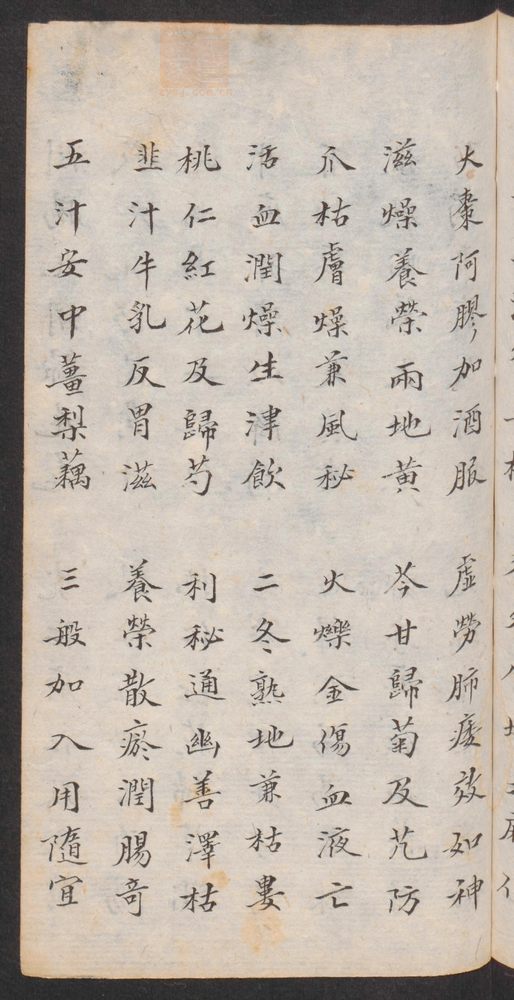 大棗阿膠加酒服 虛勞肺痿效如神
滋燥養榮兩地黃 芩甘歸菊及芃防
爪枯膚燥兼風秘 火爍金傷血液亡
活血潤燥生津飲 二冬熟地兼枯蔞
桃仁紅花及歸芍 利秘通幽善澤枯
韭汁牛乳反胃滋 養榮散瘀潤腸竒
五汁安中薑梨藕 三般加入用隨宜